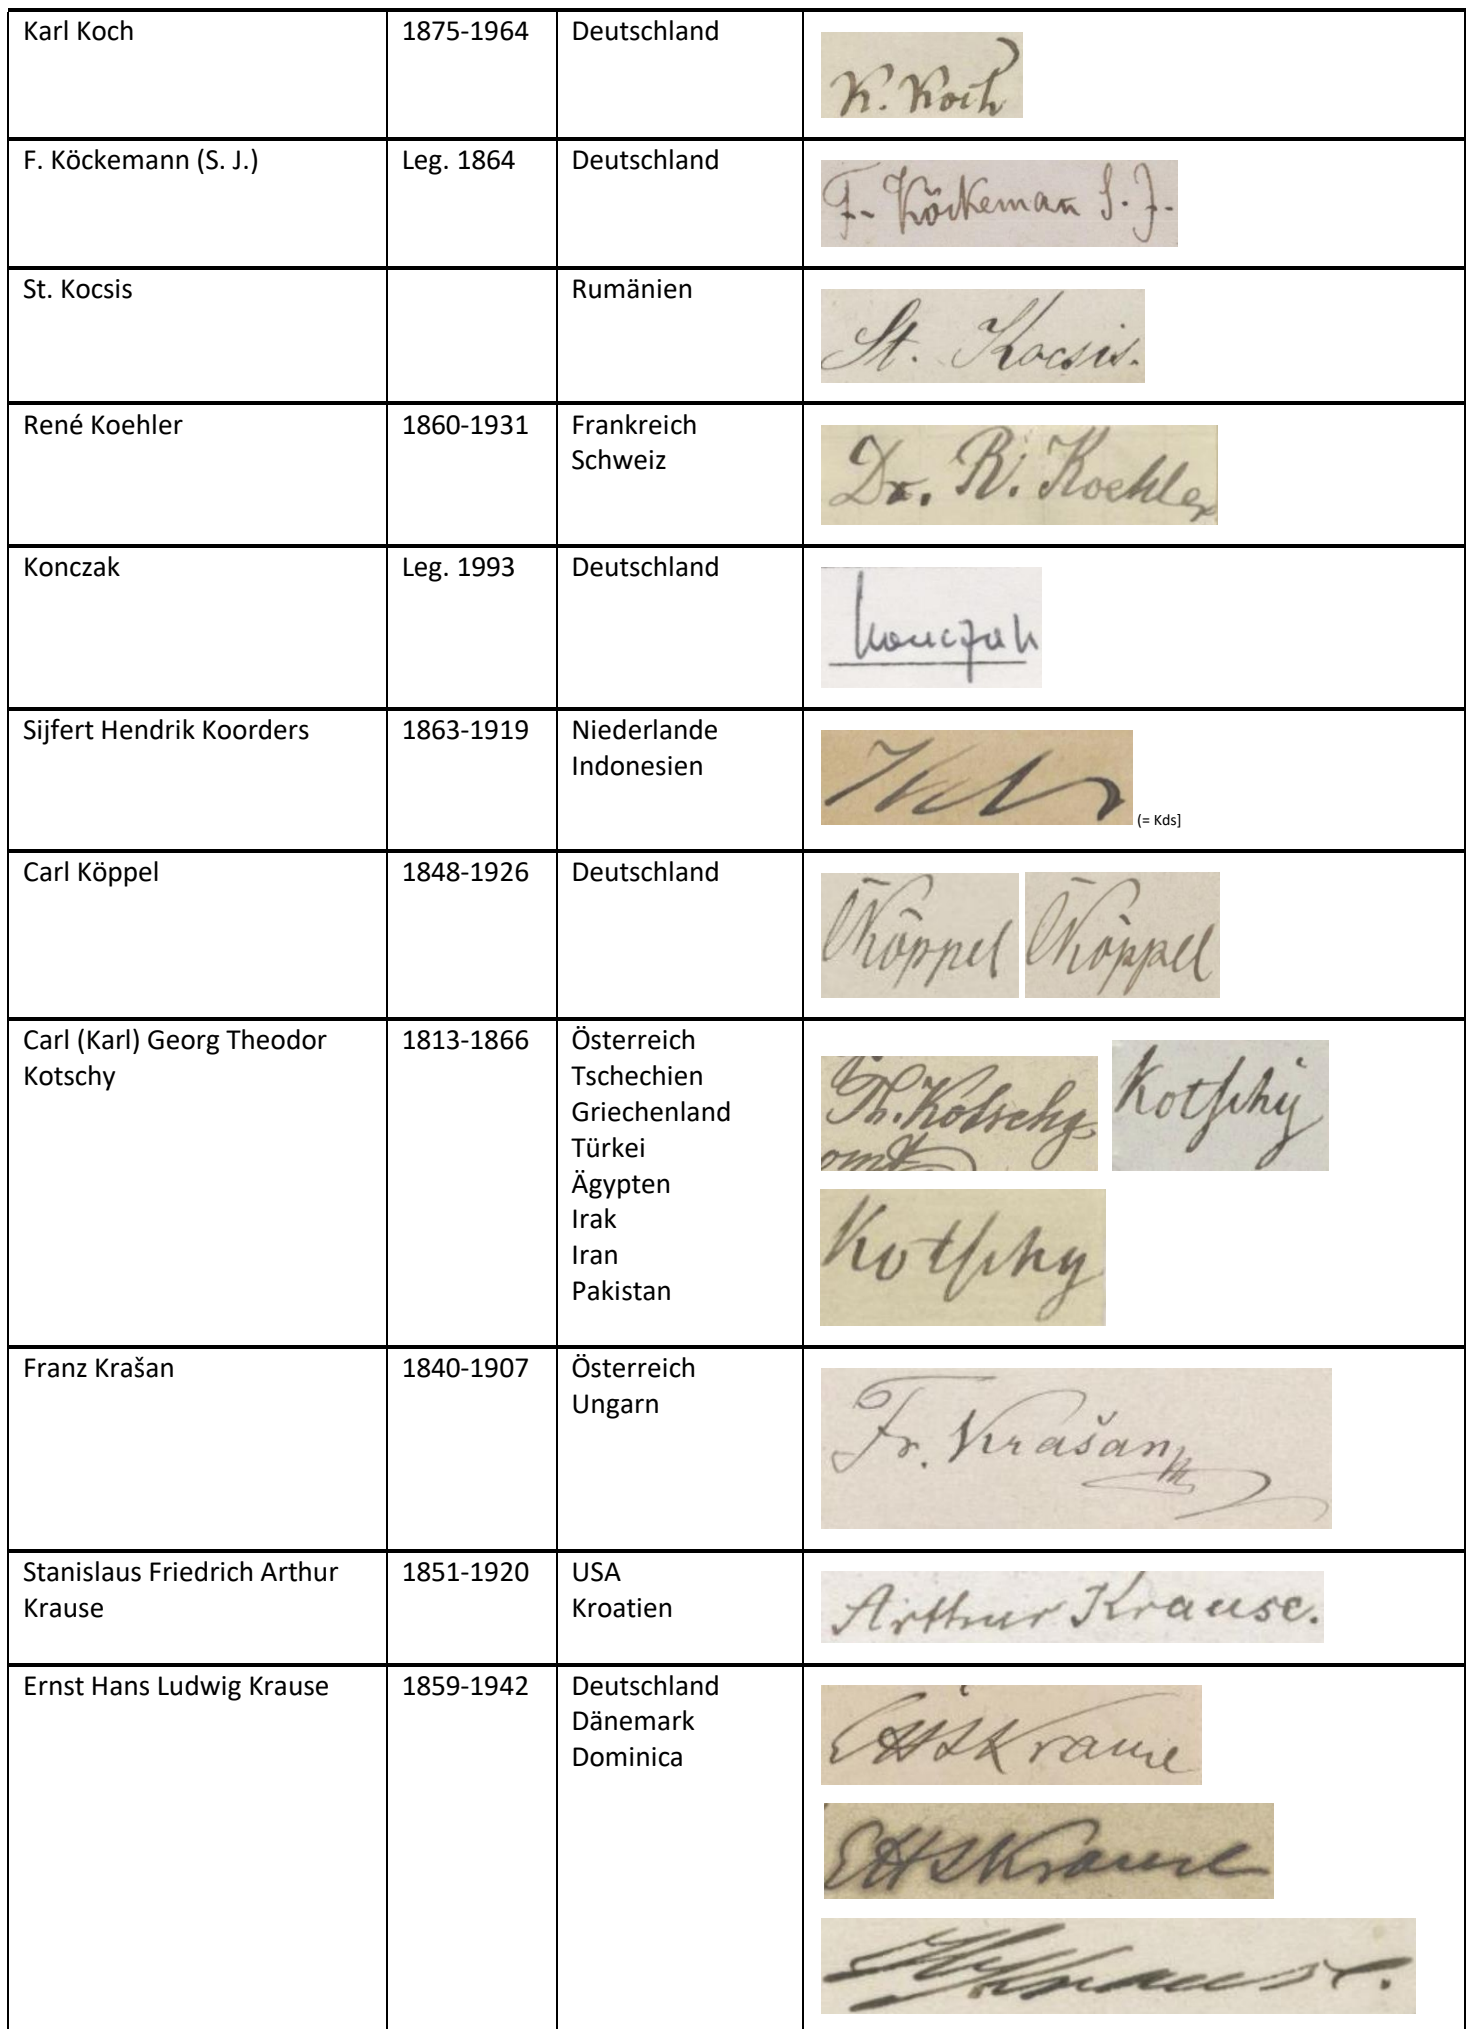 Karl Koch 1875-1964 Deutschland
K. Koch
F. Köckemann (S. J.) Leg. 1864 Deutschland
F. Köckeman S. J.
St. Kocsis Rumänien
St. Kocsis.
René Koehler 1860-1931 Frankreich
Schweiz
Dr. R. Koehler
Konczak Leg. 1993 Deutschland
Konczak
Sijfert Hendrik Koorders 1863-1919 Niederlande
Indonesien
Kds (= Kds]
Carl Köppel 1848-1926 Deutschland
CKöppel CKöppel
Carl (Karl) Georg Theodor 1813-1866 Österreich
Kotschy Tschechien
Griechenland
Türkei
Ägypten
Irak
Iran
Pakistan
Th. Kotschy Kotschy
Kotschy
Franz Krašan 1840-1907 Österreich
Ungarn
Fr. Krašan
Stanislaus Friedrich Arthur 1851-1920 USA
Krause Kroatien
Arthur Krause.
Ernst Hans Ludwig Krause 1859-1942 Deutschland
Dänemark
Dominica
EHLKrause
EHLKrause
Krause.